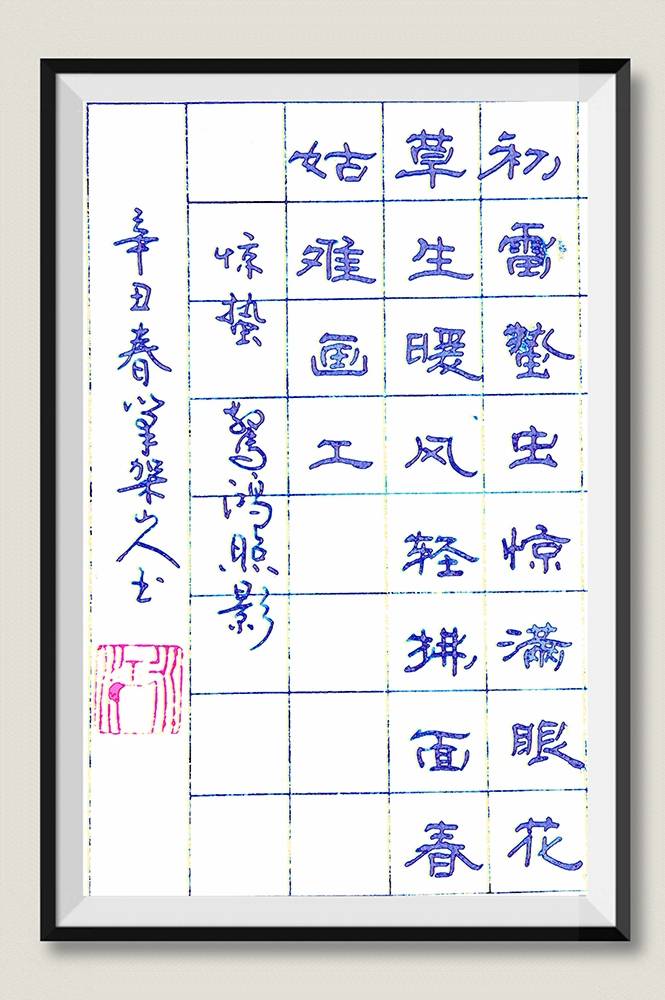 初雷蛰虫惊满眼花
草生暖风轻拂面春
姑难画工
惊蛰 惊鸿照影
辛丑春笔架山人书